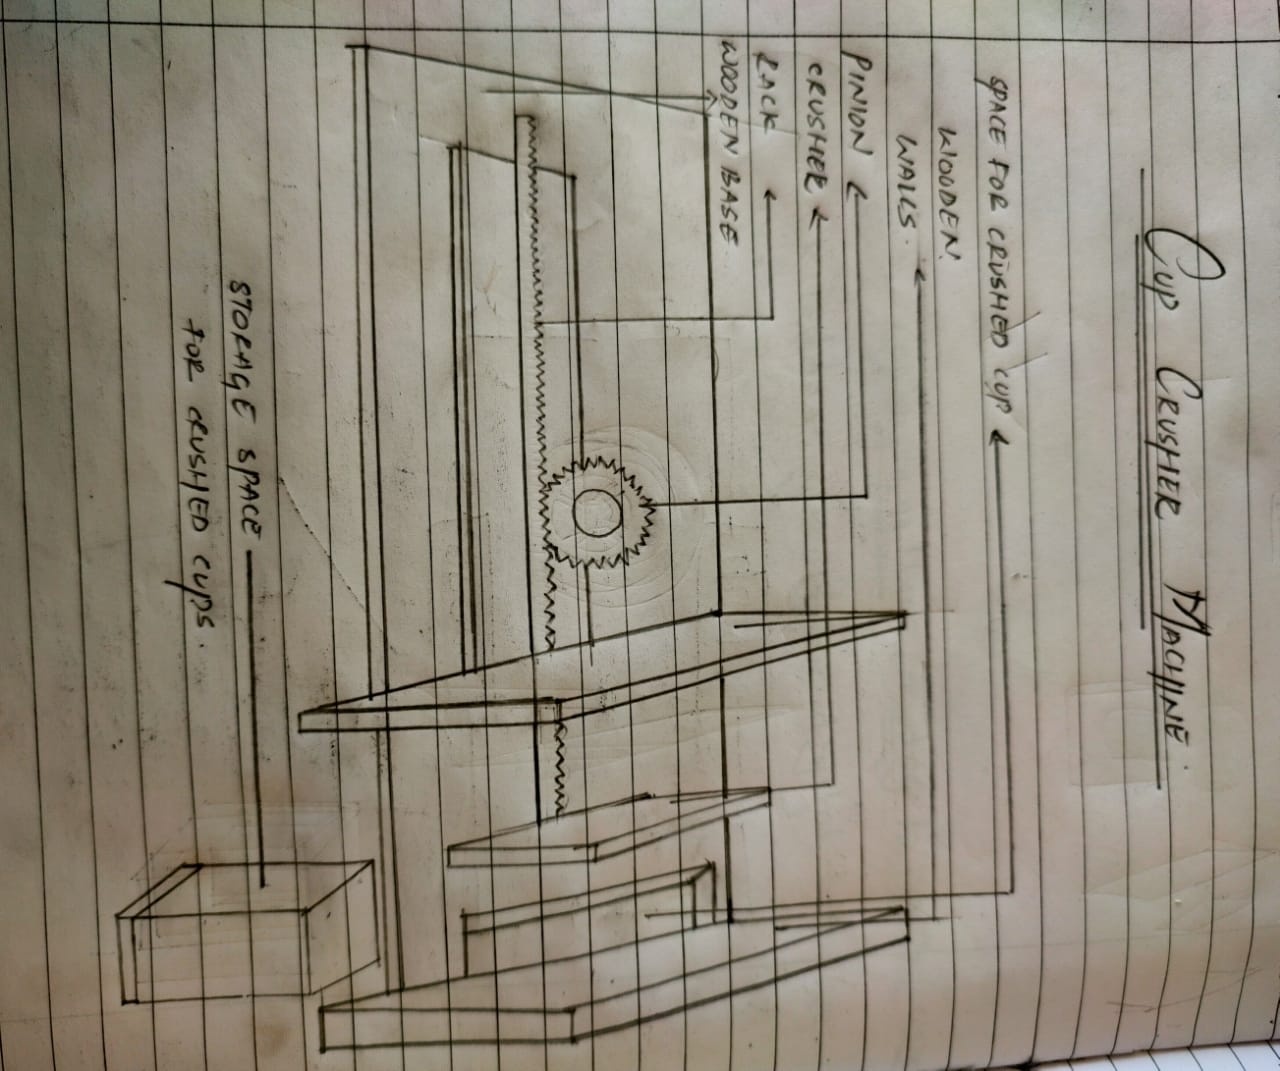 CUP CRUSHER MACHINE
SPACE FOR CRUSHED CUP
WOODEN.
WALLS.
PINION
CRUSHER
RACK
WOODEN BASE
STORAGE SPACE
FOR CRUSHED CUPS.